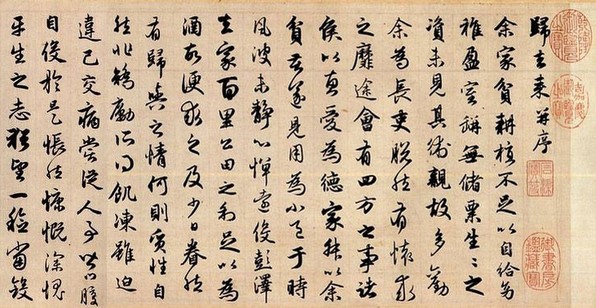 歸去来并序
余家貧耕植不足以自給幼
稚盈室缾無儲粟生生之
資未見其術親故多勸
余為長吏脫然有懷求
之靡途會有四方之事諸
侯以惠愛為德家叔以余
貧苦遂見用為小邑于時
風波未靜心憚遠役彭澤
去家百里公田之利足以為
酒故便求之及少日眷然
有歸與之情何則質性自
然非矯勵所得飢凍雖迫
違己交病嘗從人事皆口腹
自役於是悵然慷慨深愧
平生之志猶望一稔當斂
御書房鑑藏寶